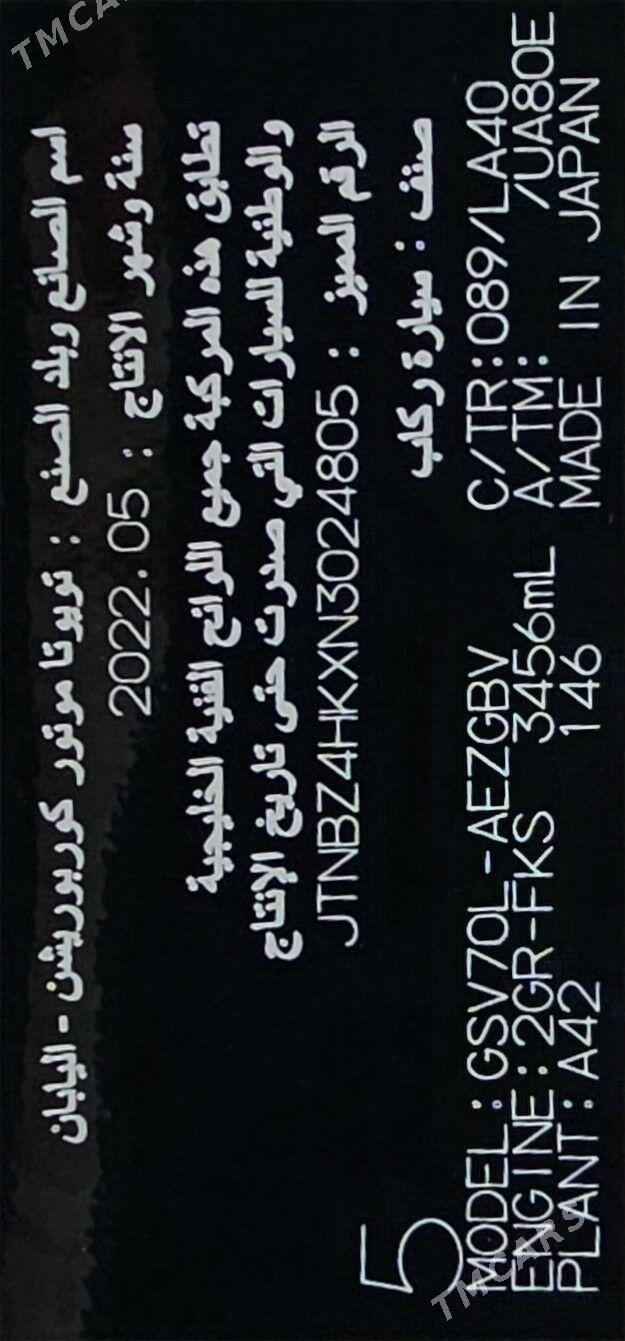 اسم الصانع وبلد الصنع : تويوتا موتور كوربوريشن - اليابان
سنة وشهر الانتاج : 2022.05
تطابق هذه المركبة جميع اللوائح الفنية الخليجية
والوطنية للسيارات التي صدرت حتى تاريخ الإنتاج
الرقم المميز : JTNBZ4HKXN3024805
صنف : سيارة ركاب
5
MODEL:GSV70L-AEZGBV C/TR:089/LA40
ENGINE:2GR-FKS 3456mL A/TM: /UA80E
PLANT:A42 146 MADE IN JAPAN
TMCARS
TMCARS